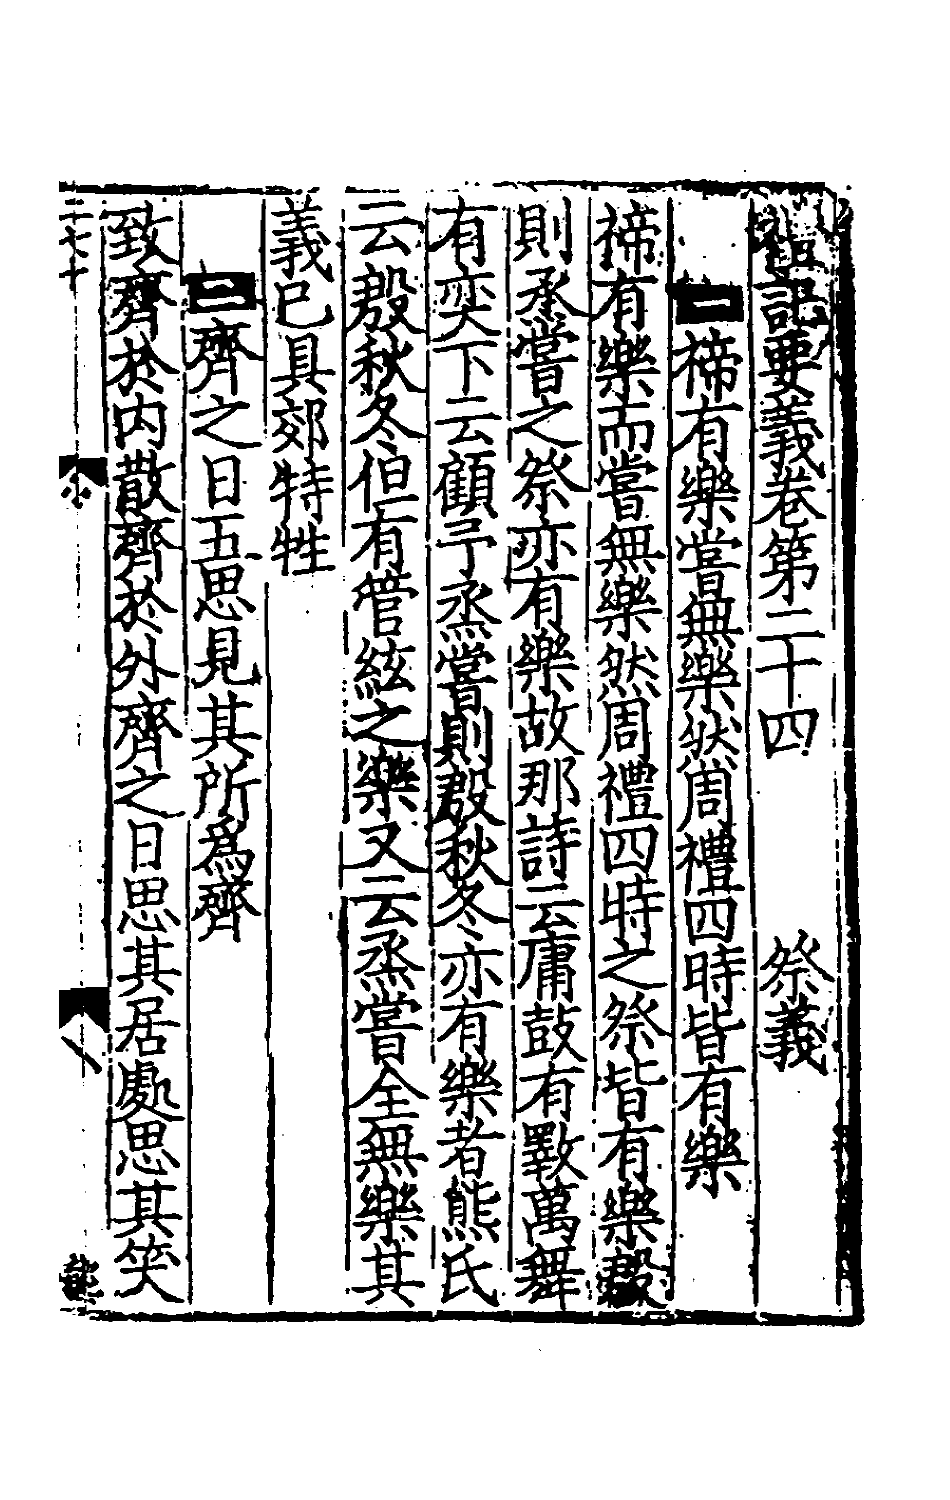 禮記要義卷第二十四 祭義
一禘有樂嘗無樂然周禮四時皆有樂
禘有樂而嘗無樂然周禮四時之祭皆有樂殷
則烝嘗之祭亦有樂故那詩云庸鼓有斁萬舞
有奕下云顧予烝嘗則殷秋冬亦有樂者熊氏
云殷秋冬但有管絃之樂又云烝嘗全無樂其
義已具郊特牲
二齊之日五思見其所爲齊
致齊於内散齊於外齊之日思其居處思其笑